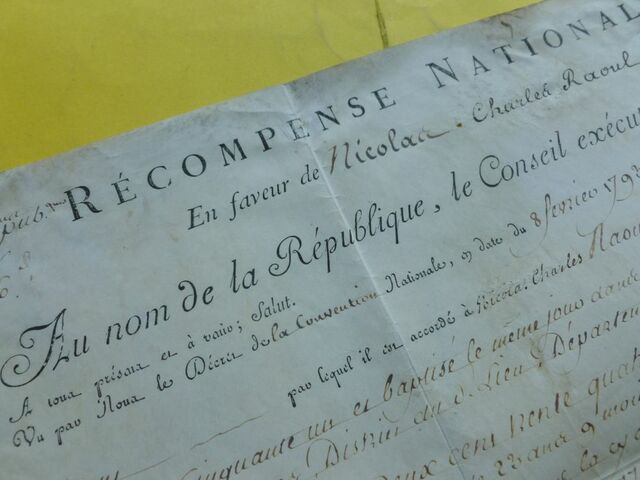 RÉCOMPENSE NATIONAL
En faveur de Nicolas Charles Raoul
pub.
Au nom de la République, le Conseil exécu
A tous présens et à venir; Salut.
Vu par Nous le Décret de la Convention Nationale, en date du 8 février 179
par lequel il est accordé à Nicolas Charles Raou
inquante un et baptisé le même jour dans
District du d. Lieu, Départem
eux cent trente quat
22 ans 9 mo